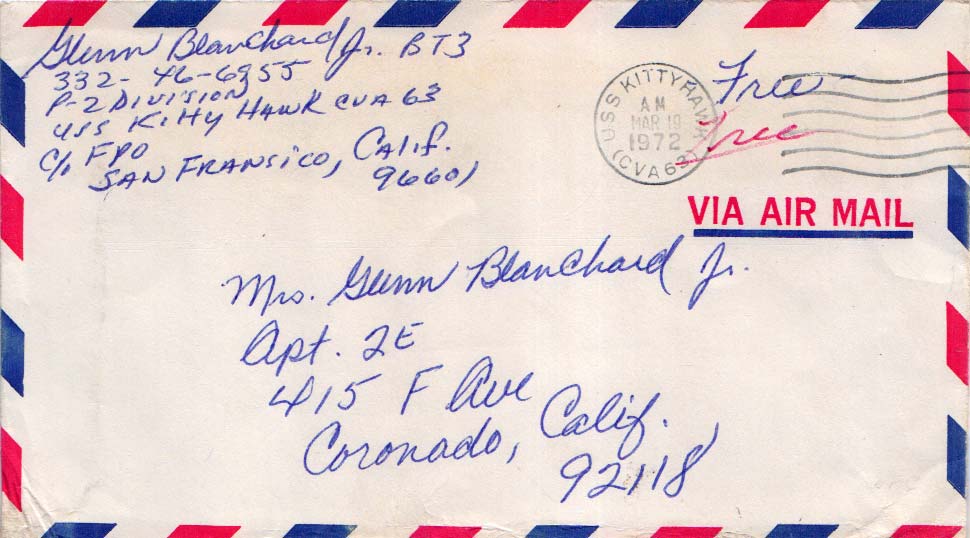 Glenn Blanchard Jr. BT3
P-2 DIVISION
USS KiTTY HAWK CVA 63
C/o FPO
SAN FRANSICO, CALif.
96601
USS KITTYHAWK
AM
MAR 19
1972
(CVA63)
Free
Free
VIA AIR MAIL
Mrs. Glenn Blanchard Jr.
Apt. 2E
415 F Ave
Coronado, Calif.
92118